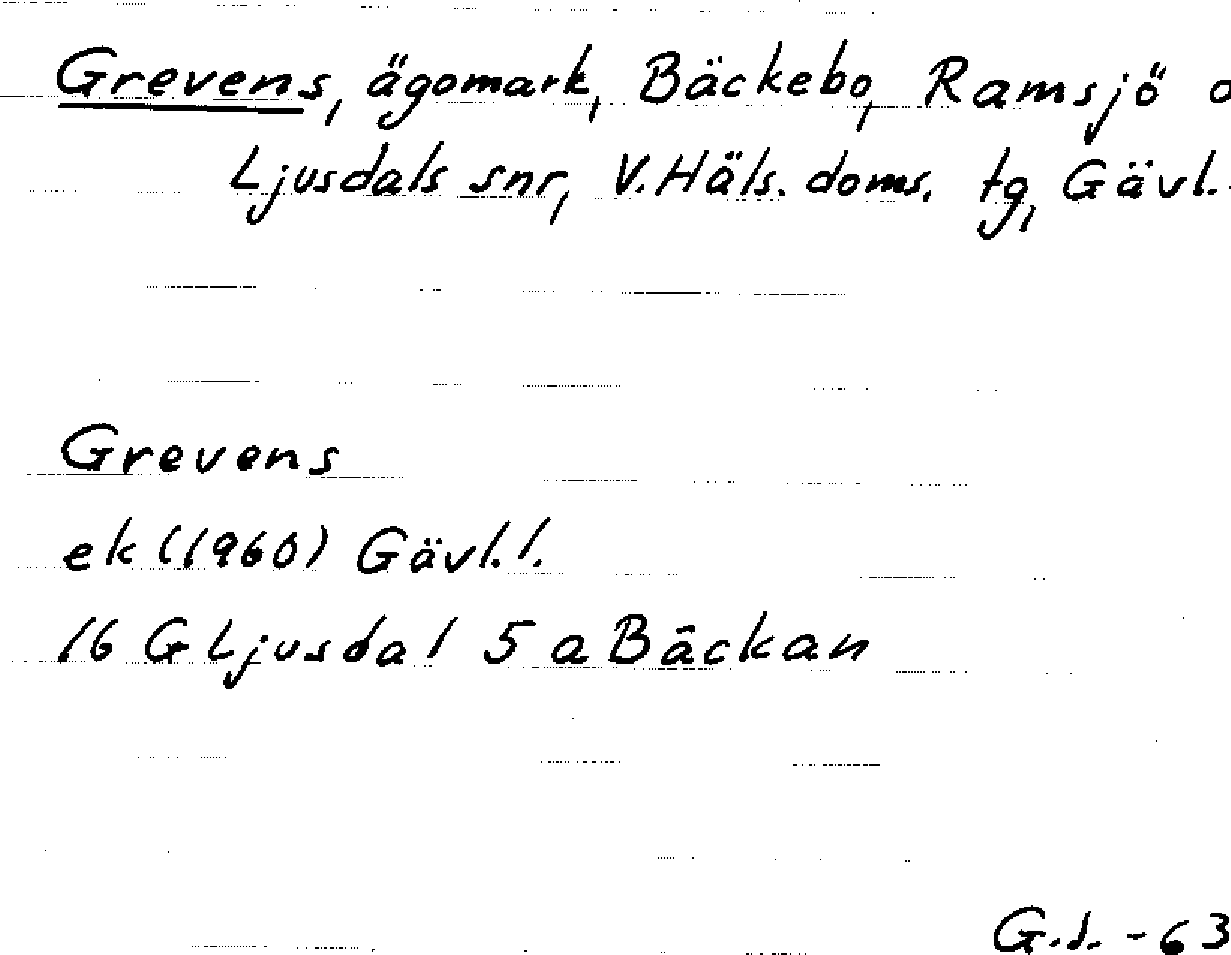 Grevens, ägomark, Bäckebo, Ramsjö o
Ljusdals snr, V. Häls. doms. tg, Gävl.
Grevens
ek (1960) Gävl. l.
16 G Ljusdal 5 a Bäckan
G.J. - 63